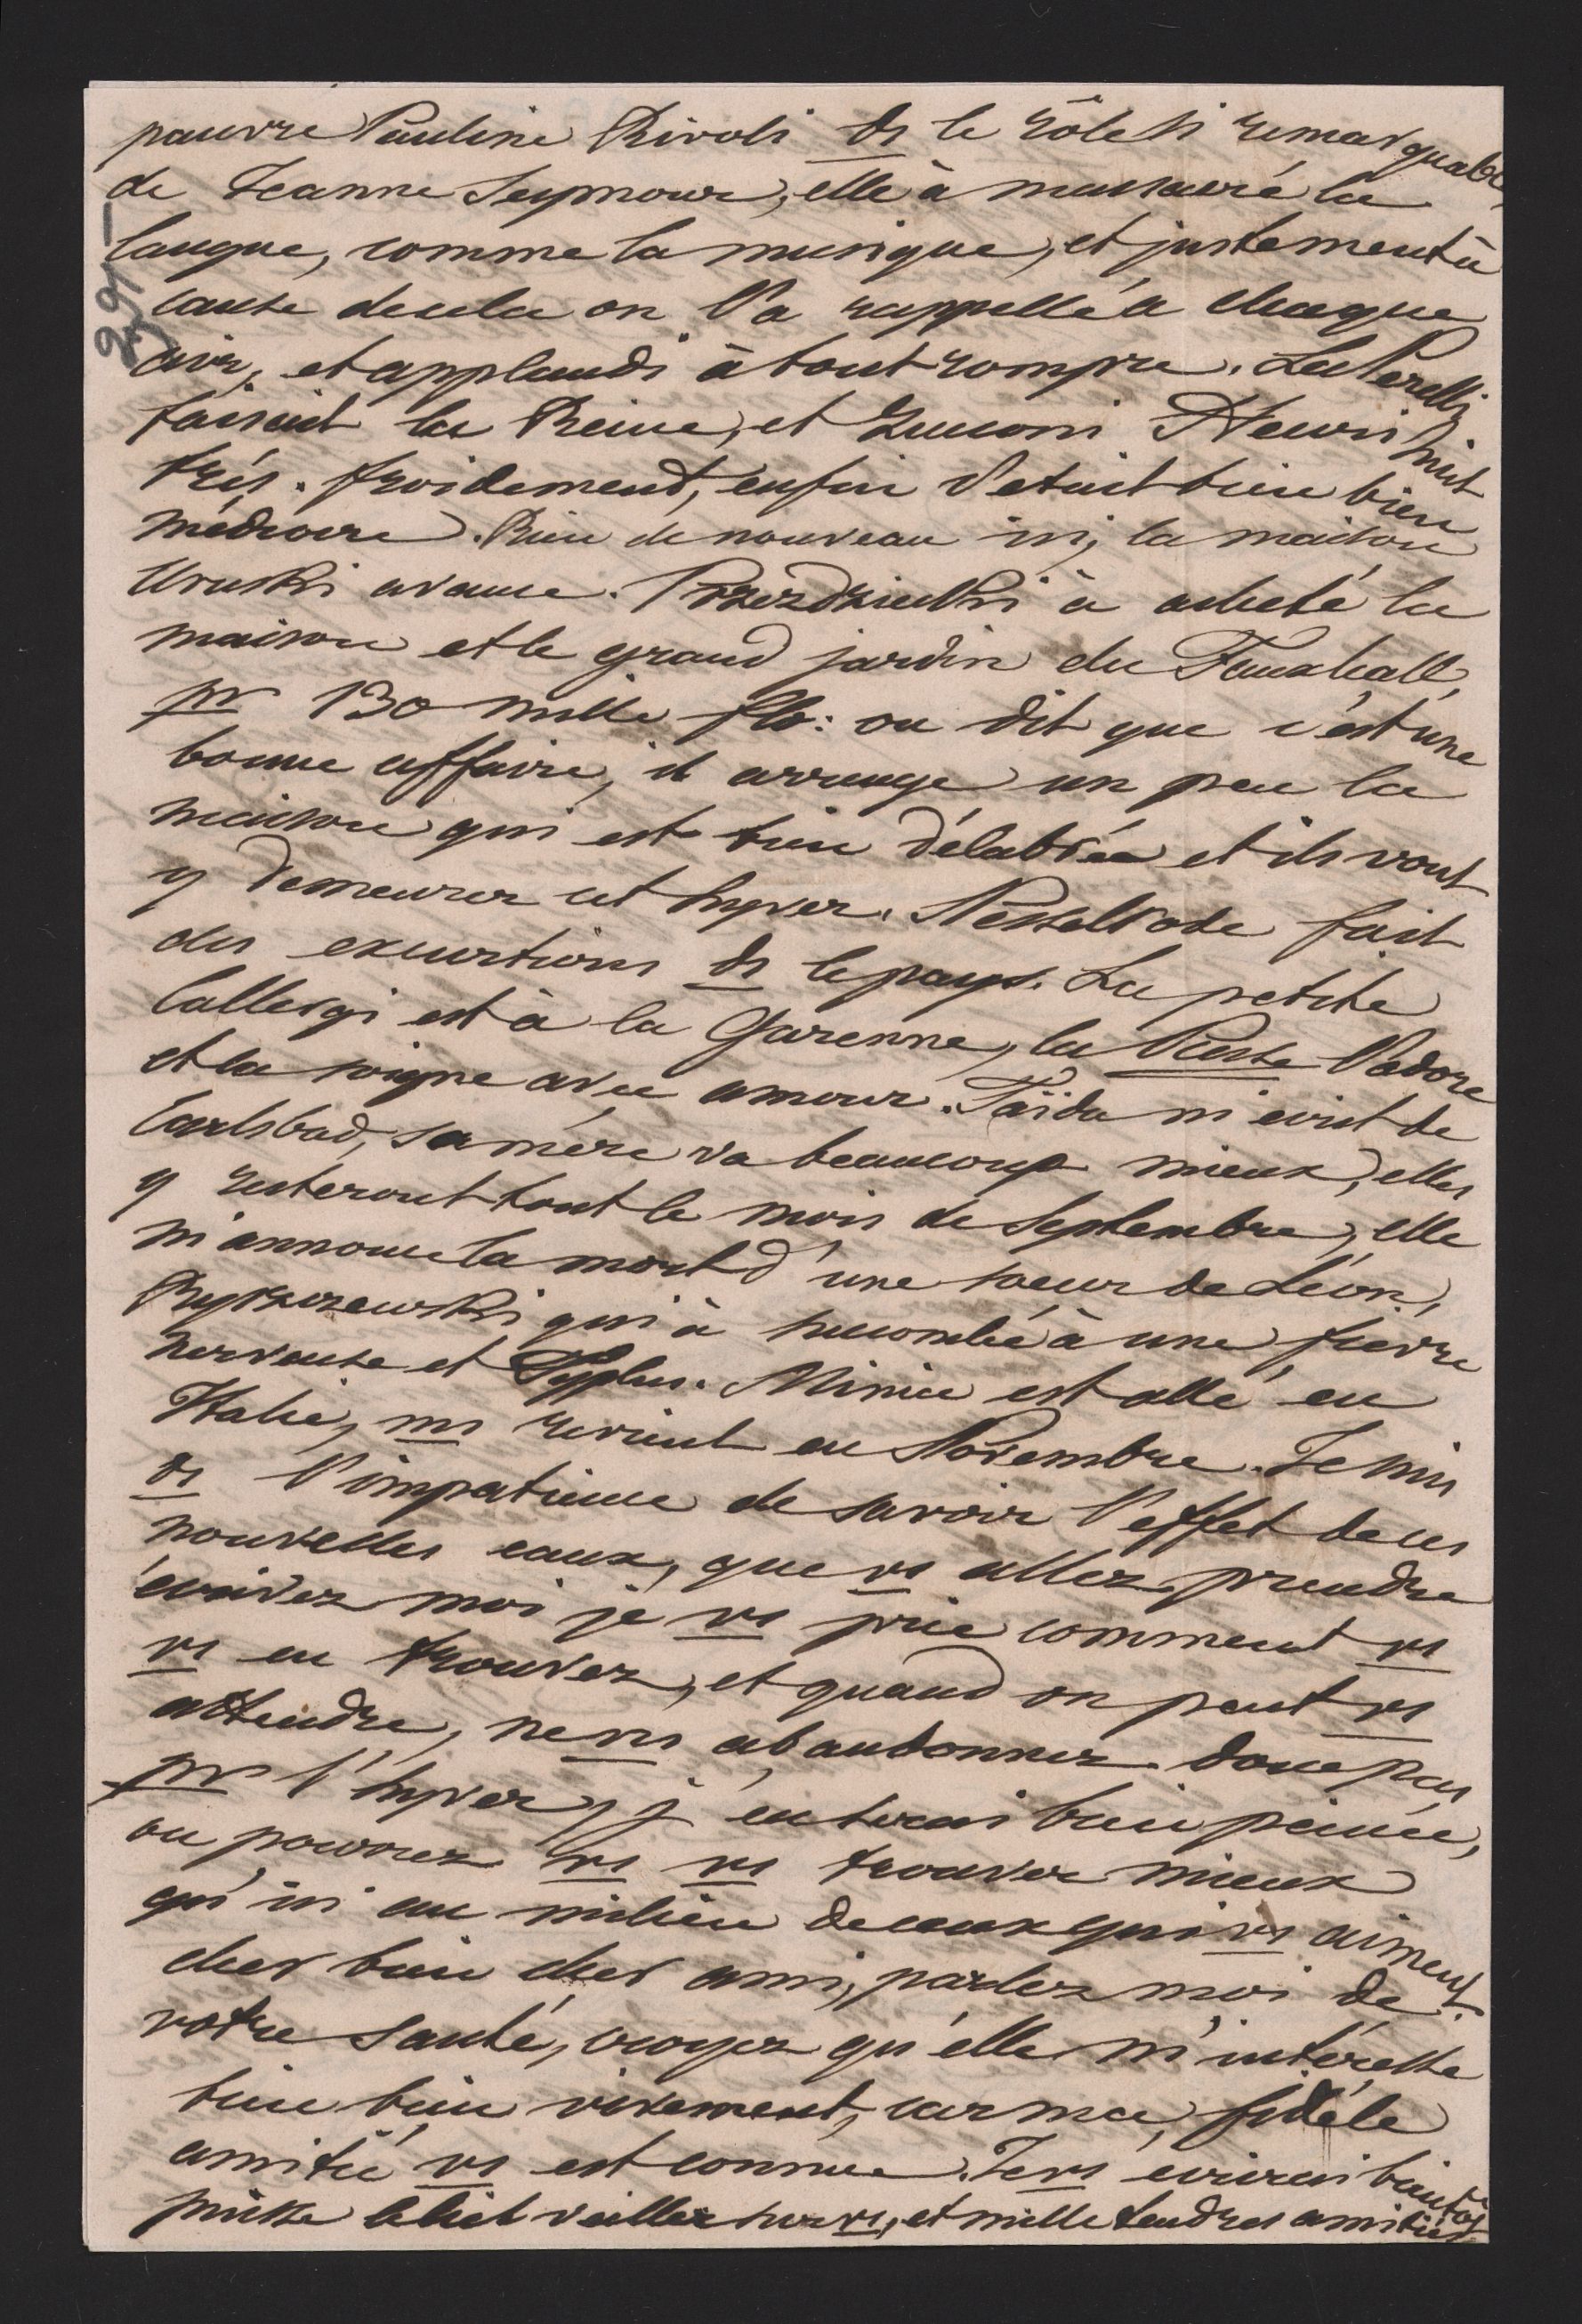 pauvre Pauline Rivoli ds le rôle si remarquable,
de Jeanne Seymour, elle à massacré la
langue, comme la musique, et justement à
cause de cela on l'a rappellé a chaque
air, et applaudi à tout rompre. La Perelli
faisait la Reine, et Zucconi Henri huit
très froidement, enfin c'etait bien bien
médiocre. Rien de nouveau ici, la maison
Uruski avance. Przezdziecki à acheté la
maison et le grand jardin du Foxhall,
pr 130 mille flo: on dit que c'est une
bonne affaire, il arrange un peu la
maison qui est bien délabrée et ils vont
y demeurer cet hyver. Nesselrode fait
des excurtions ds le pays. La petite
Callergi est à la Garenne, la Puste l'adore
et la soigne avec amour. Taïda m'ecrit de
Carlsbad, sa mère va beaucoup mieux, elles
y resteront tout le mois de Septembre, elle
m'annonce la mort d'une soeur de Léon,
Ryszczewski qui à succombé à une fievre
nerveuse et Typhus. Mimie est allé en
Italie, ms revient en Novembre. Je suis
ds l'impatience de savoir l'effet de ces
nouvelles eaux, que vs allez prendre
écrivez moi je vs prie comment vs
vs en trouvez, et quand on peut vs
attendre, ne ns abandonnez donc pas
pr l'hyver, j'en serai bien peinée,
ou pourrez vs vs trouver mieux
qu'ici au milieu de ceux qui vs aiment.
cher bien cher ami, parlez moi de
votre santé, croyez qu'elle m'intéresse
bien bien vivement, car ma fidéle
amitié vs est connue. Je vs ecrirai bientôt
puisse le Ciel veiller sur vs, et mille tendres amitiés
291